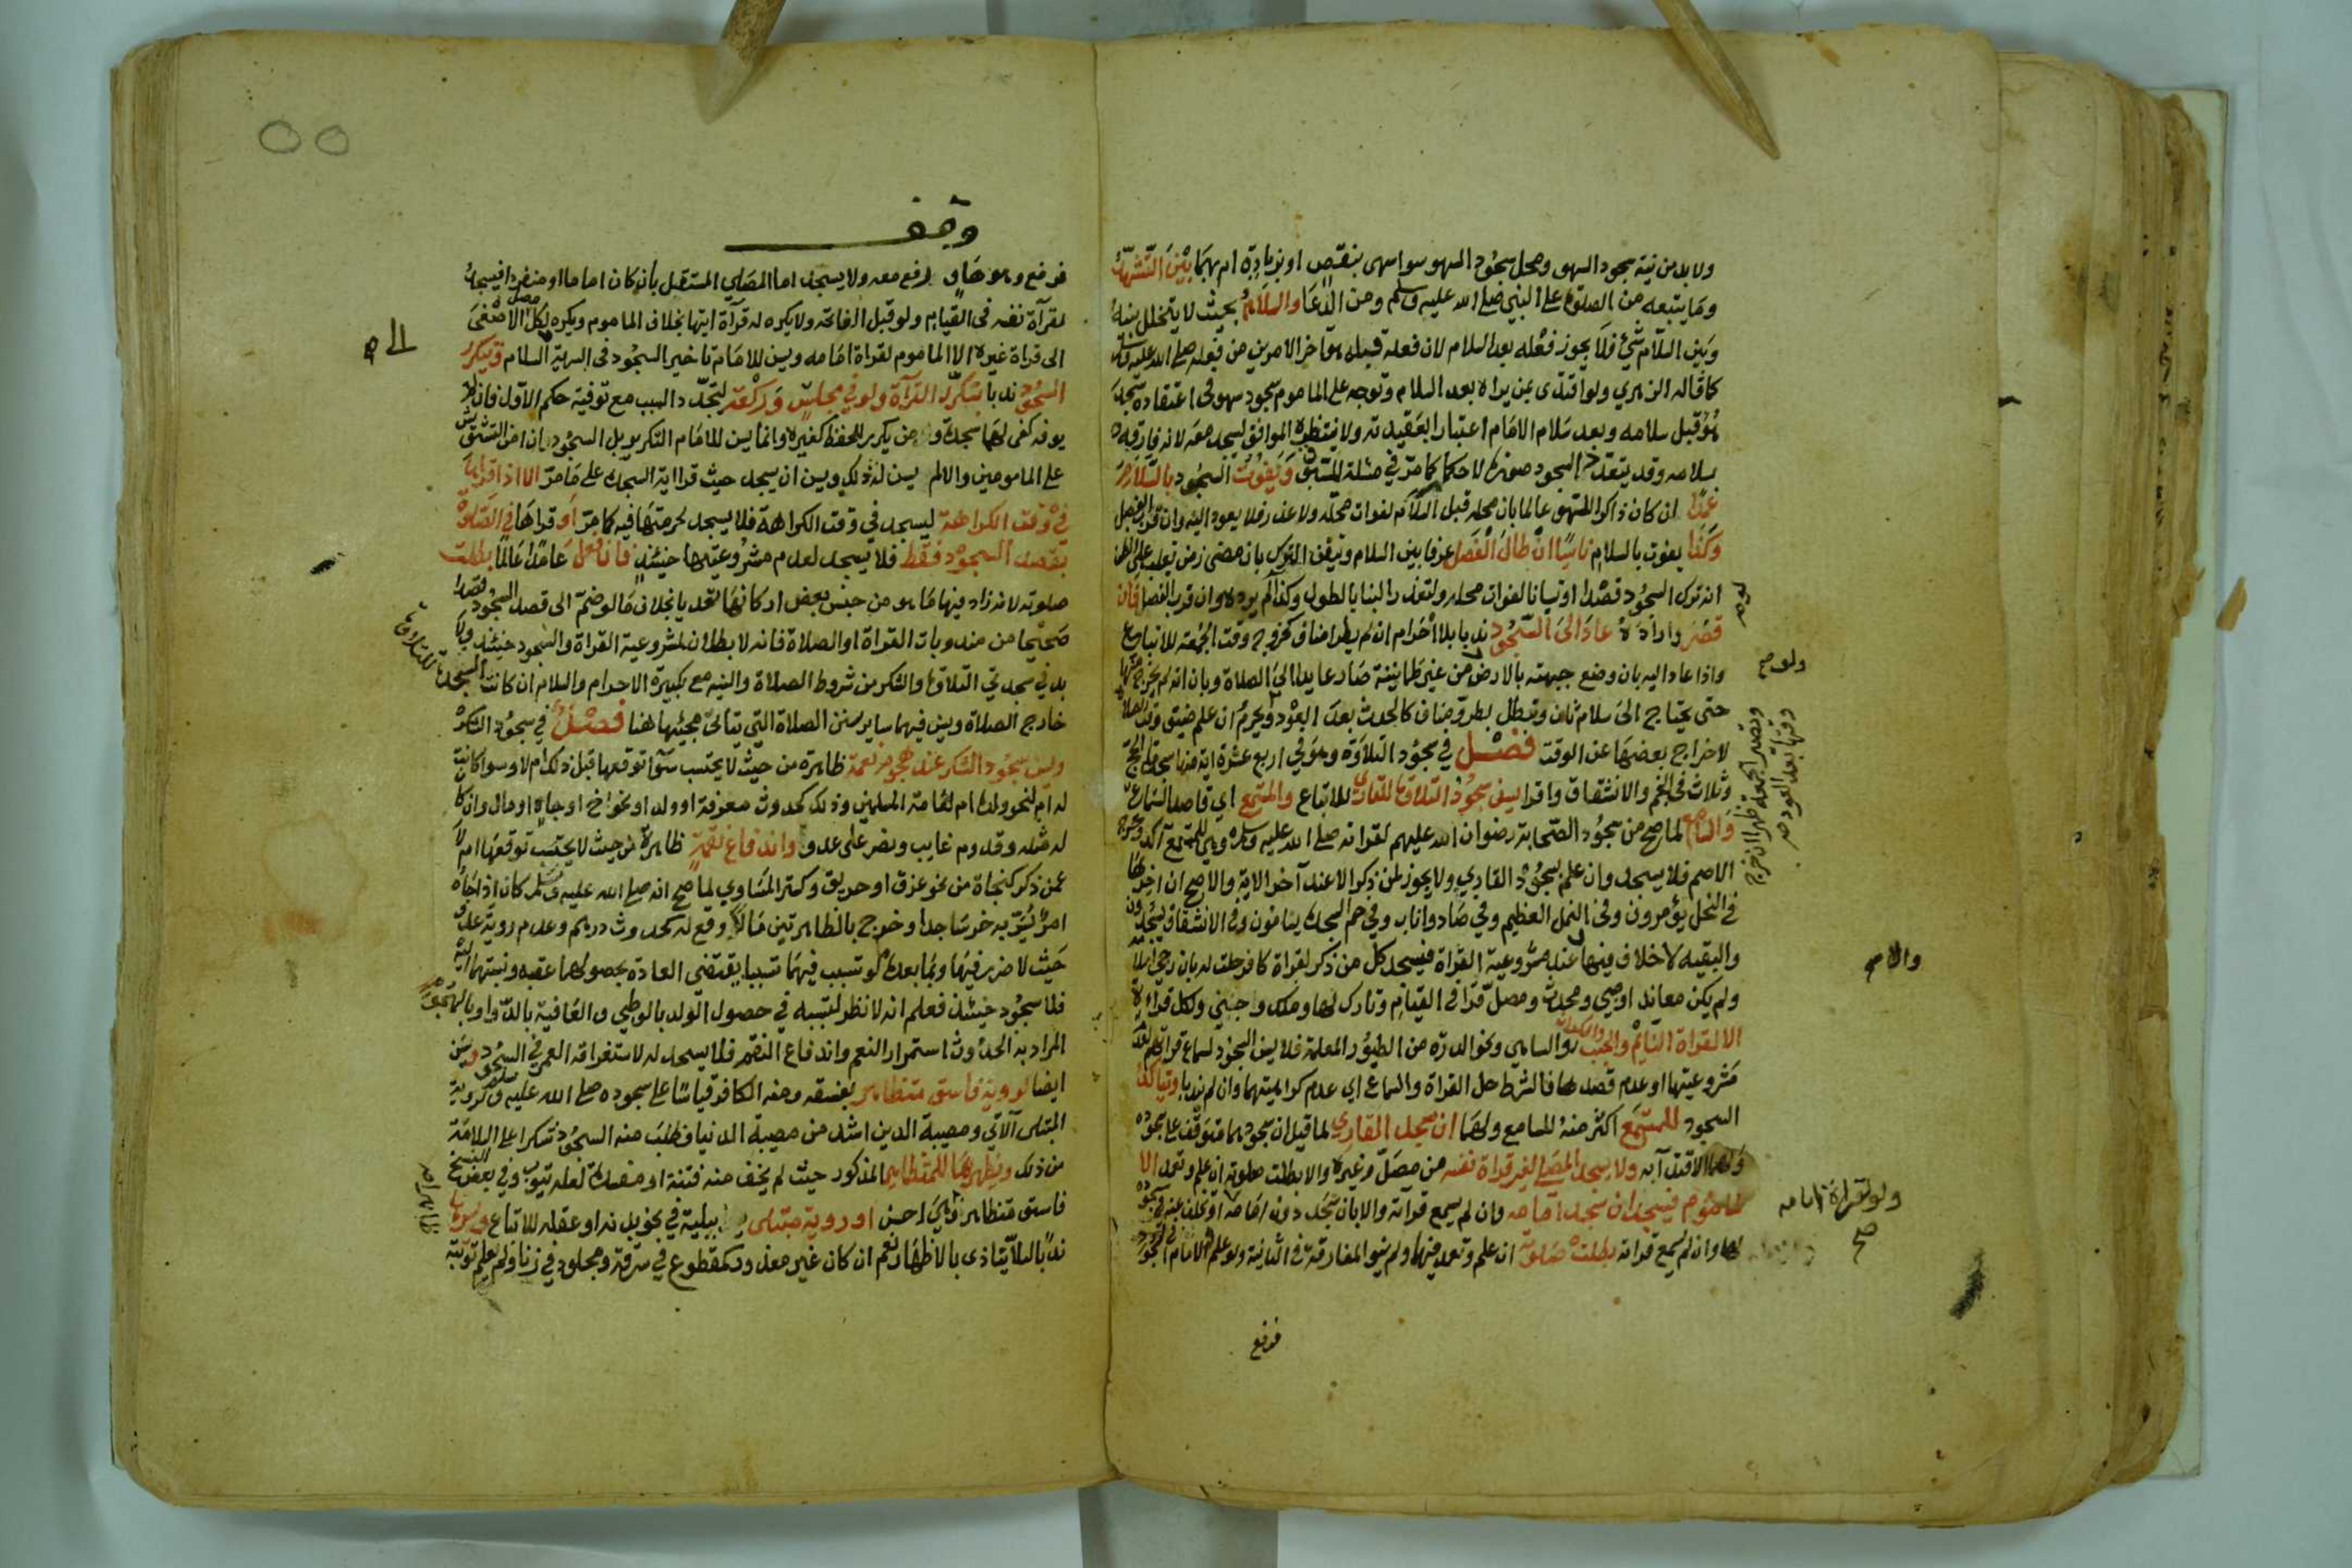 ولا بد من نية سجود السهو ومحل سجود السهو سواسهى بنقص او بزيادة ام بهما بين التشهد
وما يتبعه من الصلوة على النبي صلى الله عليه وسلم ومن الدعا والسلام بحيث لا يتخلل بينه
وبين السلام شيٌ فلا يجوز فعله بعد السلام لان فعله قبله هو اخر الامرين من فعله صلى الله عليه وسلم
كما قاله الزهري ولو اقتدى بمن يراه بعد السلام وتوجه على الماموم سجود سهو في اعتقاده سجد
هو قبل سلامه وبعد سلام الامام اعتبارا بعقيدته ولا ينتظره الموافق ليسجد معه لانه فارقه
بسلامه وقد يتعدد السجود صورة لا حكما كما مر في مسئلة المسبوق ويفوت السجود بالسلام
عمدا ان كان ذاكرا للسهو عالما بان محله قبل السلام لفوات محله ولا عذر فلا يعود اليه وان قرب الفصل
وكذا يفوت بالسلام ناسيا ان طال الفصل عرفا بين السلام وتيقن الترك بان مضى زمن يغلب على الظن
انه ترك السجود قصدا او نسيانا لفوات محله ولتعذر البنا بالطول وكذا لم يرده وان قرب الفصل فان
قصر واراده عاد الى السجود ندبا بلا احرام ان لم يطرا مناف كخروج وقت الجمعة للاتباع
واذا عاد اليه بان وضع جبهته بالارض من غير طمانينة صار عايدا الى الصلاة وبان انه لم يخرج منها
حتى يحتاج الى سلام ثان وتبطل بطرو مناف كالحدث بعد العود ويحرم ان علم ضيق وقت الصلاة
لاخراج بعضها عن الوقت فصل في سجود التلاوة وهو في اربع عشرة اية منها سجدتا الحج
وثلاث في النجم والانشقاق واقرا يسن سجود التلاوة للقاري للاتباع والمستمع اي قاصد السماع
والسامع لما صح من سجود الصحابة رضوان الله عليهم لقراته صلى الله عليه وسلم وهي للمستمع آكد وخرج
الاصم فلا يسجد وان علم بسجود القاري ولا يجوز لمن ذكر الا عند آخر الاية والاصح ان اخرها
في النحل يؤمرون وفى النمل العظيم وفي صاد واناب وفي حم السجدة يسامون وفى الانشقاق يسجدون
والبقيه لا خلاف فيها عند مشروعية القراة فيسجد كل من ذكر لقراة كافر حلت له بان رجي اسلامه
ولم يكن معاند او صبي ومحدث ومصل قرا فى القيام وتارك لها وملك وجني ولكل قراءة
الا لقراة النايم والجنب والسكران والساهي ونحو الدره من الطيور المعلمة فلا يسن السجود لسماع قراتهم لعدم
مشروعيتها او عدم قصدها فالشرط حل القراة والسماع اي عدم كراهيتهما وان لم يندبا ويتاكد
السجود للمستمع اكثر منه للسامع ولهما ان سجد القاري لما قيل ان سجودهما متوقف على سجوده
ولهما الاقتدآ به ولا يسجد المصلي لغير قراة نفسه من مصل وغيره والا بطلت صلوته ان علم وتعمد الا
الماموم فيسجد ان سجد امامه وان لم يسمع قرآته والا بان سجد دون امامه او تخلف عنه في سجوده
لها وان لم يسمع قراته بطلت صلوته ان علم وتعمد فيهما ولم ينو المفارقة فى الثانية ولو علم والامام في السجود
فرفع
لم يرد
ولو صح
وتصير الجمعة ظهرا ان خرج
وقتها بعد العود صح
والا صح
ولو لقراة امامه
صح
٥٥
وقف
فرفع وهو هاو رفع معه ولا يسجد اما المصلي المستقل بان كان اماما او منفردا فيسجد
لقرآة نفسه في القيام ولو قبل الفاتحة ولا يكره له قرآة ايتها بخلاف الماموم ويكره لكل مصل الاصغى
الى قراة غيره الا الماموم لقراة امامه ويسن للامام تاخير السجود فى السرية السلام ويتكرر
السجود ندبا بتكرر القرآة ولو في مجلس وركعة لتجدد السبب مع توفية حكم الاول فان لم
يوفه كفى لهما سجدة ومن يكرر للحفظ كغيره وانما يسن للامام التكرير بل السجود ان امن التشويش
على المامومين والا لم يسن له ذلك ويسن ان يسجد حيث قرا اية السجدة على ما مر الا اذا قراها
في وقت الكراهة ليسجد في وقت الكراهة فلا يسجد لحرمتها فيه كما مر او قراها في الصلوة
بقصد السجود فقط فلا يسجد لعدم مشروعيتها حينئذ فان فعل عامدا عالما بطلت
صلوته لانه زاد فيها ما هو من جنس بعض اركانها تعديا بخلاف ما لو ضم الى قصد السجود قصدا
صحيحا من مندوبات القراة او الصلاة فانه لا بطلان لمشروعية القراة والسجود حينئذ ولا
بد في سجدتي التلاوة والشكر من شروط الصلاة والنيه مع تكبيرة الاحرام والسلام ان كانت السجدة
خارج الصلاة ويسن فيهما ساير سنن الصلاة التي يتاتى مجيئها هنا فصل في سجود الشكر
ويسن سجود الشكر عند هجوم نعمة ظاهرة من حيث لا يحتسب سوآ توقعها قبل ذلك ام لا وسوا كانت
له ام لنحو ولده ام لعامة المسلمين وذلك كحدوث معرفة او ولد او نحو اخ او جاه او مال وان كان
له مثله وقدوم غايب ونصر على عدو واندفاع نقمة ظاهرة من حيث لا يحتسب توقعها ام لا
عمن ذكر كنجاة من نحو غرق او حريق وكستر المساوي لما صح انه صلى الله عليه وسلم كان اذا جاه
امرٌ يُسَرّ به خر ساجدا وخرج بالظاهرتين ما لا وقع له كحدوث درهم وعدم روية عدو
حيث لا ضرر فيها وبما بعده لو تسبب فيهما تسببا يقتضي العادة بحصولهما عقبه ونسبتهما اليه
فلا سجود حينئذ فعلم انه لا نظر لتسببه في حصول الولد بالوطي والعافية بالدوا وبالهجوم
المراد به الحدوث استمرار النعم واندفاع النقم فلا يسجد له لاستغراقه العمر في السجود ويسن
ايضا لروية فاسق متظاهر بفسقه ومنه الكافر قياسا على سجوده صلى الله عليه وسلم لروية
المبتلى الآتي ومصيبة الدين اشد من مصيبة الدنيا فطلب منه السجود شكرا على السلامة
من ذلك ويظهرها للمتظاهر المذكور حيث لم يخف منه فتنة او مفسدة لعله يتوب وفي بعض النسخ
فاسق متظاهر وهي احسن او روية مبتلى ببلية في نحو بدنه او عقله للاتباع ويسرها
ندبا لئلا يتاذى بالاظهار نعم ان كان غير معذور كمقطوع في سرقة ومجلود في زنا ولم يعلم توبته
الى صح
للتلاوة
ظاهرا صح